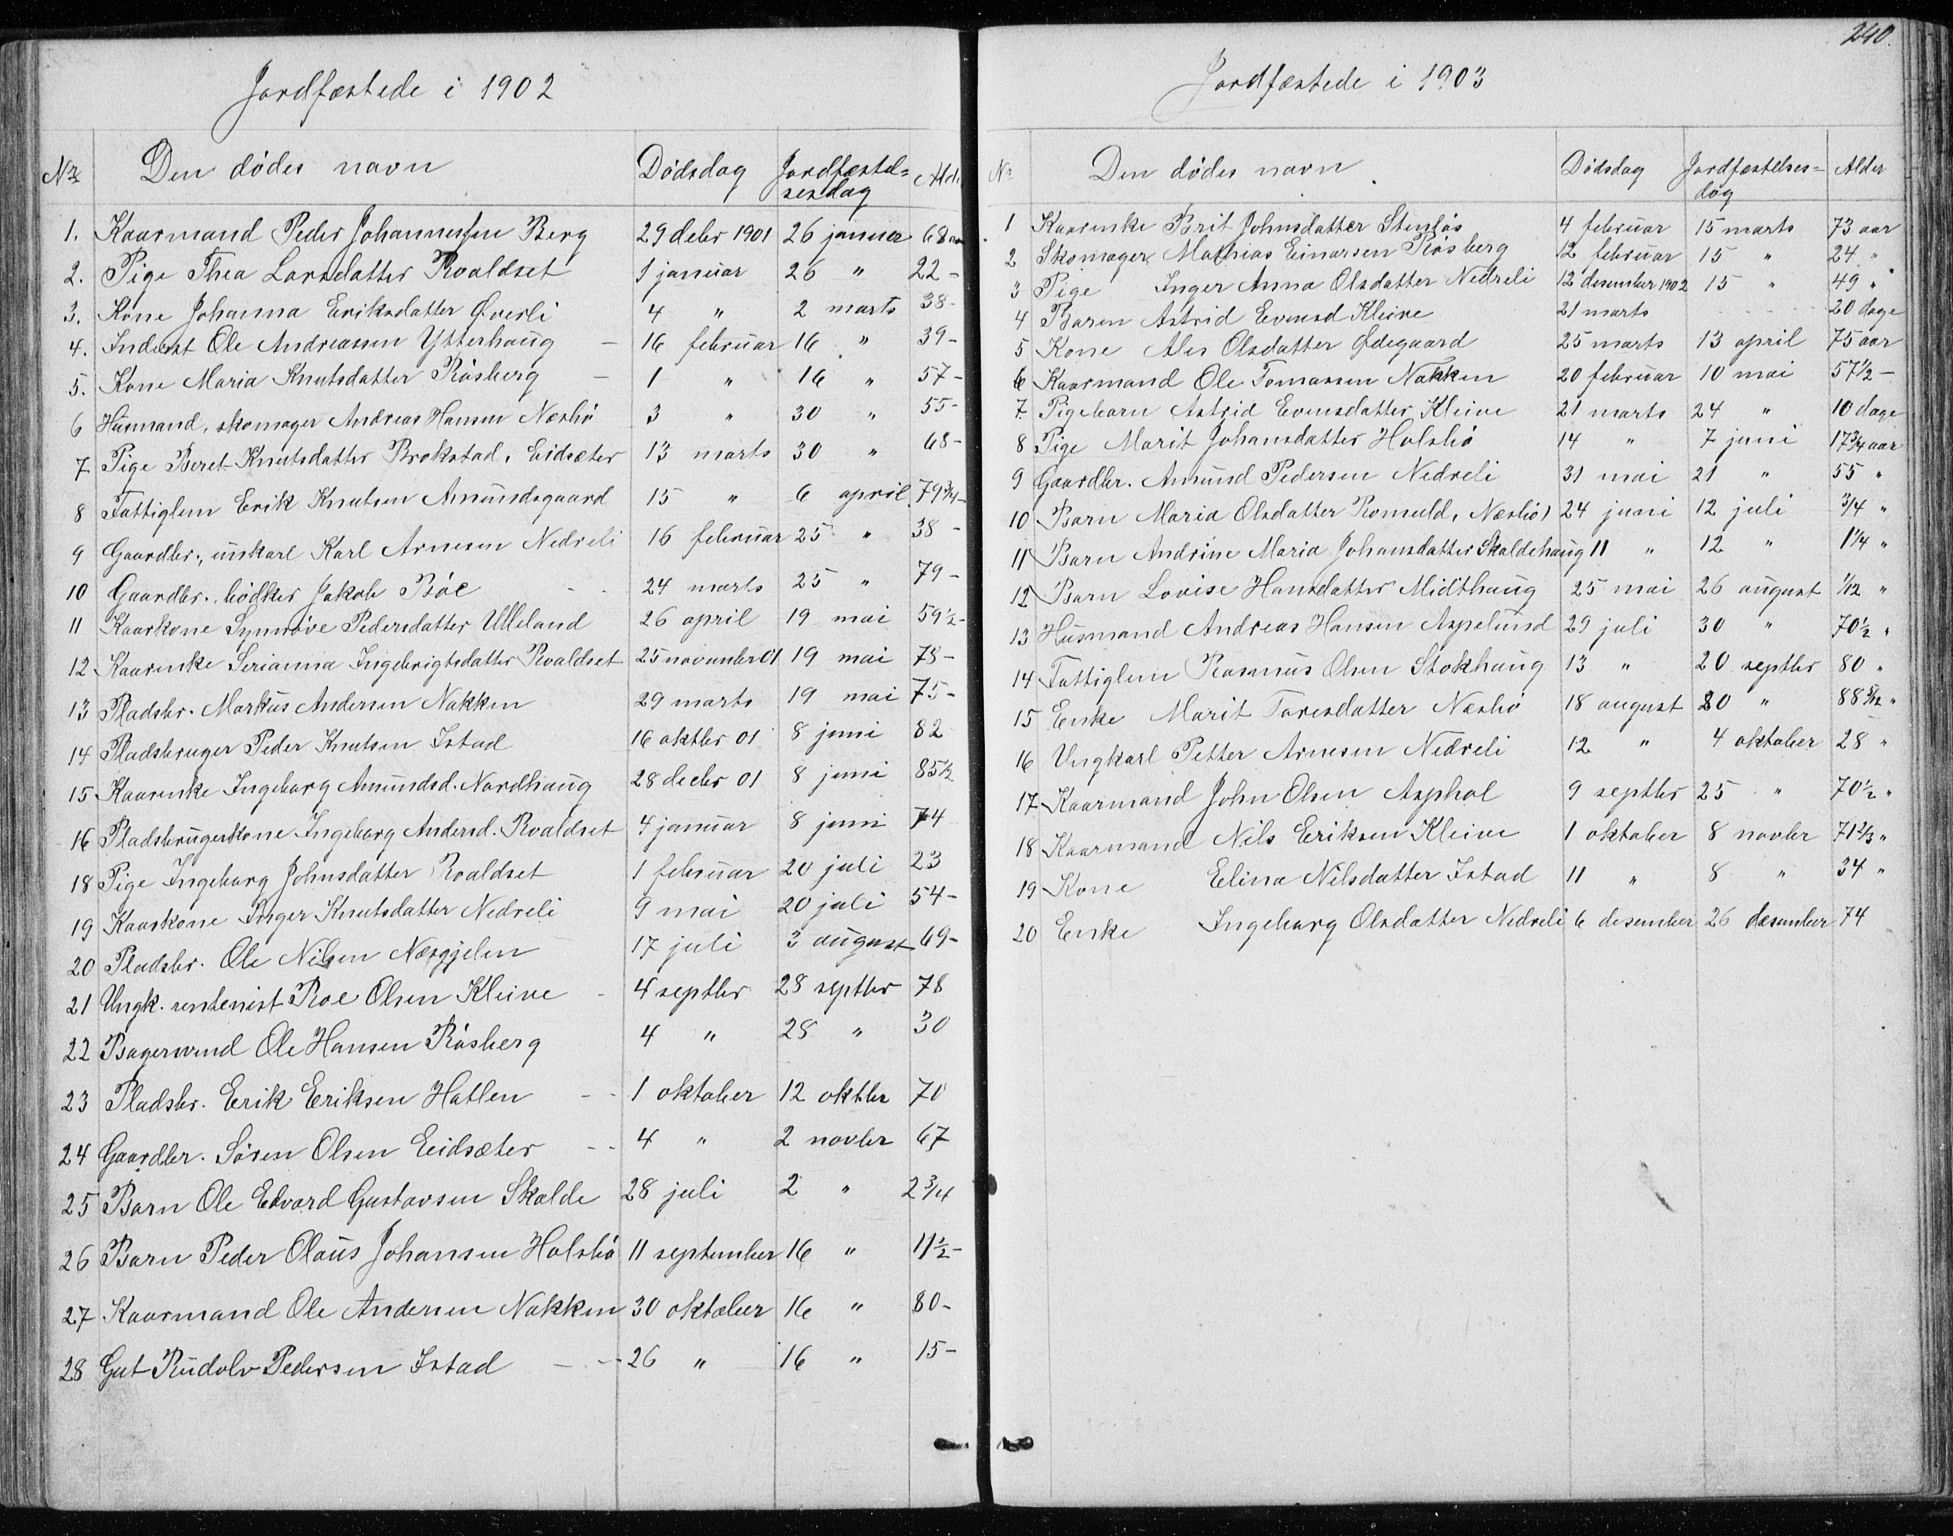 Jordfæstede i 1902
No Den dødes navn Dødsdag Jordfæstel=sesdag Alder
1. Kaarmand Peder Johannessen Berg 29 debr 1901 26 januar 68 aar
2. Pige Thea Larsdatter Roaldset 1 januar 26 " 22 -
3. Kone Johanna Eriksdatter Øverli 4 " 2 marts 38 -
4. Inderst Ole Andreassen Ytterhaug 16 februar 16 " 39 -
5. Kone Maria Knutsdatter Røsberg 1 " 16 " 57 -
6 Husmand, skomager Andreas Hansen Næsbø 3 " 30 " 55 -
7 Pige Beret Knutsdatter Brokstad, Eidsæter 13 marts 30 " 68 -
8 Fattiglem Erik Knutsen Amundsgaard 15 " 6 april 79 3/4 -
9 Gaardbr., unkarl Karl Arnesen Nedreli 16 februar 25 " 38 -
10 Gaardbr., bødker Jakob Bøe 24 marts 25 " 79 -
11 Kaarkone Synnøve Pedersdatter Ulleland 26 april 19 mai 59 1/2 -
12 Kaarenke Serianna Ingebrigtsdatter Roaldset 25 november 01 19 mai 78 -
13 Pladsbr. Markus Andersen Nakken 29 marts 19 mai 75 -
14 Pladsbruger Peder Knutsen Istad 16 oktbr 01 8 juni 82
15 Kaarenke Ingeborg Amundsd. Nordhaug 28 decbr 01 8 juni 85 1/2
16 Pladsbrugerkone Ingeborg Andersd. Roaldset 4 januar 8 juni 74
18 Pige Ingeborg Johnsdatter Roaldset 1 februar 20 juli 23
19 Kaarkone Inger Knutsdatter Nedreli 9 mai 20 juli 54 -
20 Pladsbr. Ole Nilsen Næsgjelen 17 juli 3 august 69 -
21 Ungk. rentenist Roe Olsen Kleive 4 septbr 28 septbr 78
22 Bagersvend Ole Hansen Røsberg 4 " 28 " 30
23 Pladsbr. Erik Eriksen Hatlen 1 oktober 12 oktbr 70
24 Gaardbr. Søren Olsen Eidsæter 4 " 2 novbr 67
25 Barn Ole Edvard Gustavsen Skalde 28 juli 2 " 2 3/4
26 Barn Peder Olaus Johansen Holsbø 11 september 16 " 11 1/2 -
27 Kaarmand Ole Andersen Nakken 30 oktober 16 " 80 -
28 Gut Rudolv Pedersen Istad 26 " 16 " 15 -
240.
Jordfæstede i 1903
No Den dødes navn Dødsdag Jordfæstelses=dag Alder
1 Kaarenke Brit Johnsdatter Stenløs 4 februar 15 marts 73 aar
2 Skomager Mathias Einarsen Røsberg 12 februar 15 " 24 "
3 Pige Inger Anna Olsdatter Nedreli 12 desember 1902 15 " 49 "
4 Baren Astrid Evensd Kleive 21 marts 20 dage
5 Kone Ales Olsdatter Ødegaard 25 marts 13 april 75 aar
6 Kaarmand Ole Tomassen Nakken 20 februar 10 mai 57 1/2 -
7 Pigebarn Astrid Evensdatter Kleive 21 marts 24 " 10 dage
8 Pige Marit Johansdatter Holsbø 14 " 7 juni 17 3/4 aar
9 Gaardbr. Amund Pedersen Nedreli 31 mai 21 " 55 "
10 Barn Maria Olsdatter Romuld, Næsbø 24 juni 12 juli 3/4 "
11 Barn Andrine Maria Johansdatter Skaldehaug 11 " 12 " 1 1/4 "
12 Barn Lovise Hansdatter Midthaug 25 mai 26 august 1/12 "
13 Husmand Andreas Hansen Aspelund 29 juli 30 " 70 1/2 "
14 Fattiglem Rasmus Olsen Stokhaug 13 " 20 septbr 80 "
15 Enke Marit Toresdatter Næsbø 18 august 20 " 88 5/12 "
16 Ungkarl Petter Arnesen Nedreli 12 " 4 oktober 28 "
17 Kaarmand John Olsen Asphol 9 septbr 25 " 70 1/2 "
18 Kaarmand Nils Eriksen Kleive 1 oktober 8 novbr 71 2/3 "
19 Kone Elina Nilsdatter Istad 11 " 8 " 34 "
20 Enke Ingeborg Olsdatter Nedreli 6 desember 26 desember 74